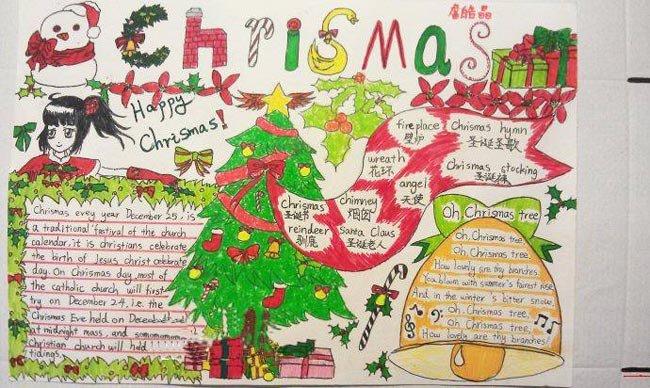 ChriSmas
Happy
Chrismas!
fireplace
壁炉
Chrismas hymn
圣诞圣歌
wreath
花环
Chrismas stocking
圣诞袜
angel
天使
Chrismas
圣诞书
chimney
烟囱
reindeer
驯鹿
Santa Claus
圣诞老人
Chrismas evey year December 25, is
a traditional festival of the church
calendar, it is christians celebrate
the birth of Jesus christ celebrate
day. On Chrismas day, most of
the catholic church will first
try on December 24, i.e. the
Chrismas Eve held on
at midnight mass, and
Christian church will hold
tidings.
Oh, Chrismas tree
Oh, Chrismas tree,
Oh, Chrismas tree,
How lovely are thy branches.
You bloom with summer's fairest rose
And in the winter's bitter snow.
Oh, Chrismas tree,
Oh, Chrismas tree,
How lovely are thy branches!